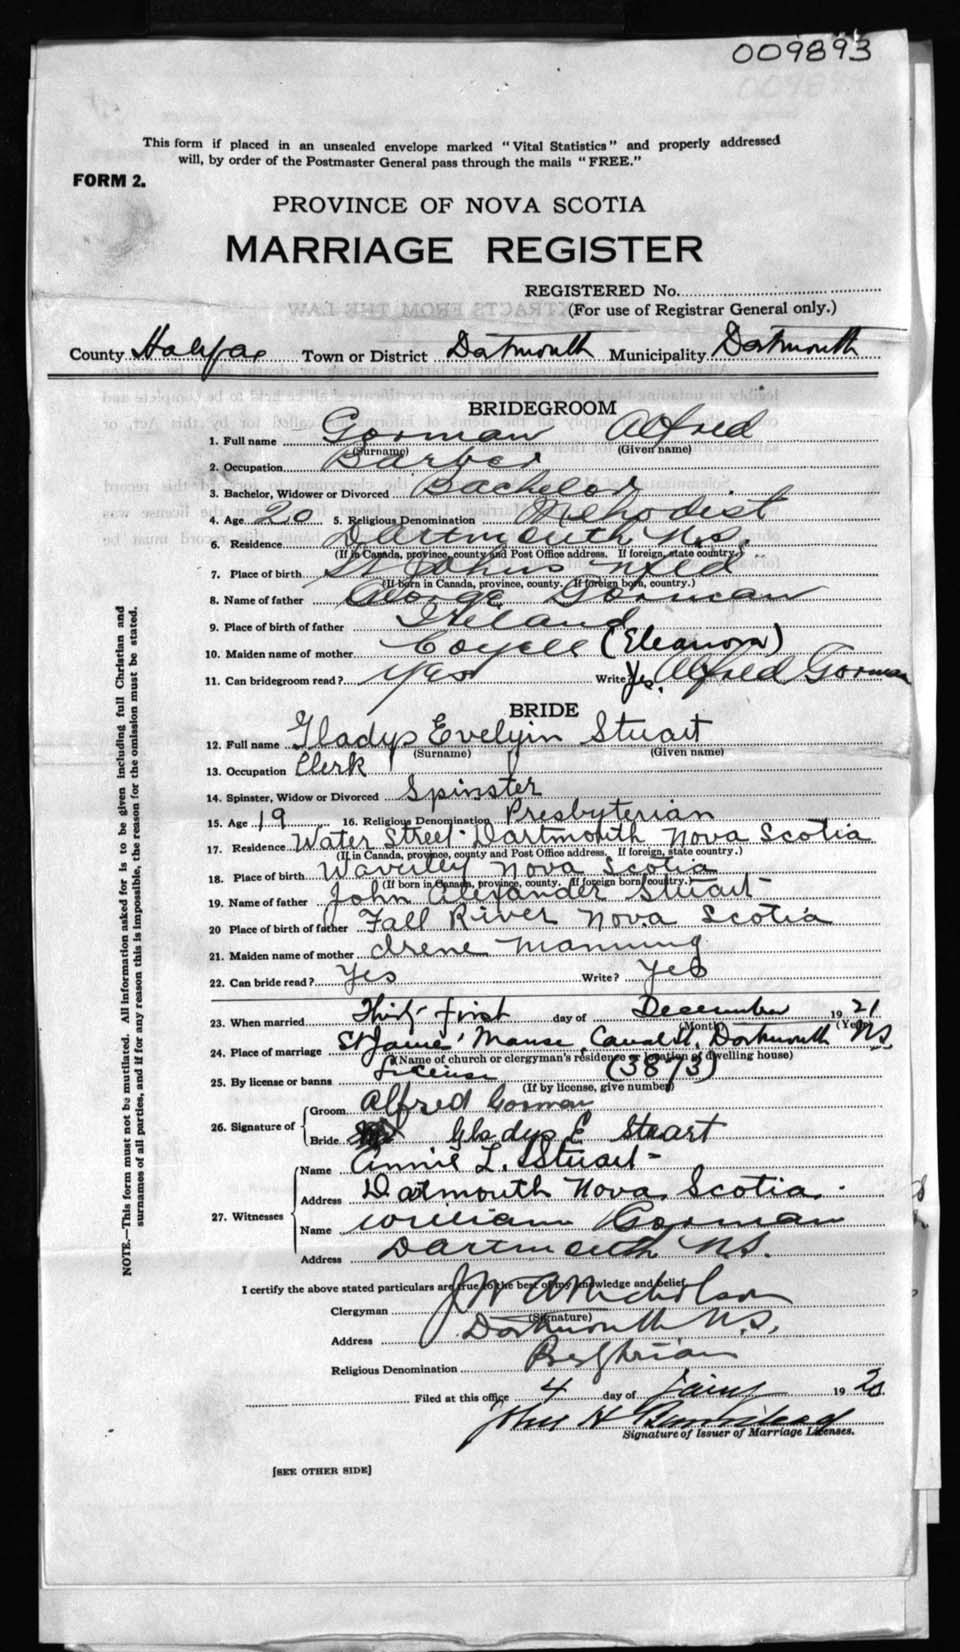 009893
This form if placed in an unsealed envelope marked "Vital Statistics" and properly addressed
will, by order of the Postmaster General pass through the mails "FREE."
FORM 2.
PROVINCE OF NOVA SCOTIA
MARRIAGE REGISTER
REGISTERED No.
(For use of Registrar General only.)
County Halifax Town or District Dartmouth Municipality Dartmouth
BRIDEGROOM
1. Full name Gorman Alfred
(Surname) (Given name)
2. Occupation Barber
3. Bachelor, Widower or Divorced Bachelor
4. Age 20 5. Religious Denomination Methodist
6. Residence Dartmouth N.S.
(If in Canada, province, county and Post Office address. If foreign, state country.)
7. Place of birth St Johns Nfld
(If born in Canada, province, county. If foreign born, country.)
8. Name of father George Gorman
9. Place of birth of father Ireland
10. Maiden name of mother (Eleanora)
11. Can bridegroom read? Yes Write? Yes. Alfred Gorman
BRIDE
12. Full name Gladys Evelyin Stuart
(Surname) (Given name)
13. Occupation Clerk
14. Spinster, Widow or Divorced Spinster
15. Age 19 16. Religious Denomination Presbyterian
17. Residence Water Street Dartmouth Nova Scotia
(If in Canada, province, county and Post Office address. If foreign, state country.)
18. Place of birth Waverley Nova Scotia
(If born in Canada, province, county. If foreign born, country.)
19. Name of father John Alexander Stuart
20 Place of birth of father Fall River Nova Scotia
21. Maiden name of mother Irene Manning
22. Can bride read? Yes Write? Yes
23. When married Thirty-first day of December 1921
(Month) (Year)
24. Place of marriage St James' Manse, Canal St, Dartmouth N.S.
(Name of church or clergyman's residence or location of dwelling house)
25. By license or banns License (3873)
(If by license, give number)
26. Signature of Groom Alfred Gorman
Bride Gladys E Stuart
27. Witnesses Name Annie L. Stuart
Address Dartmouth Nova Scotia.
Name William Gorman
Address Dartmouth N.S.
I certify the above stated particulars are true to the best of my knowledge and belief.
Clergyman J W A Nicholson
(Signature)
Address Dartmouth N.S.
Religious Denomination Presbyterian
Filed at this office 4 day of Jany 19
John H
Signature of Issuer of Marriage Licenses.
[SEE OTHER SIDE]
NOTE.—This form must not be mutilated. All information asked for is to be given including full Christian and
surnames of all parties, and if for any reason this is impossible, the reason for the omission must be stated.